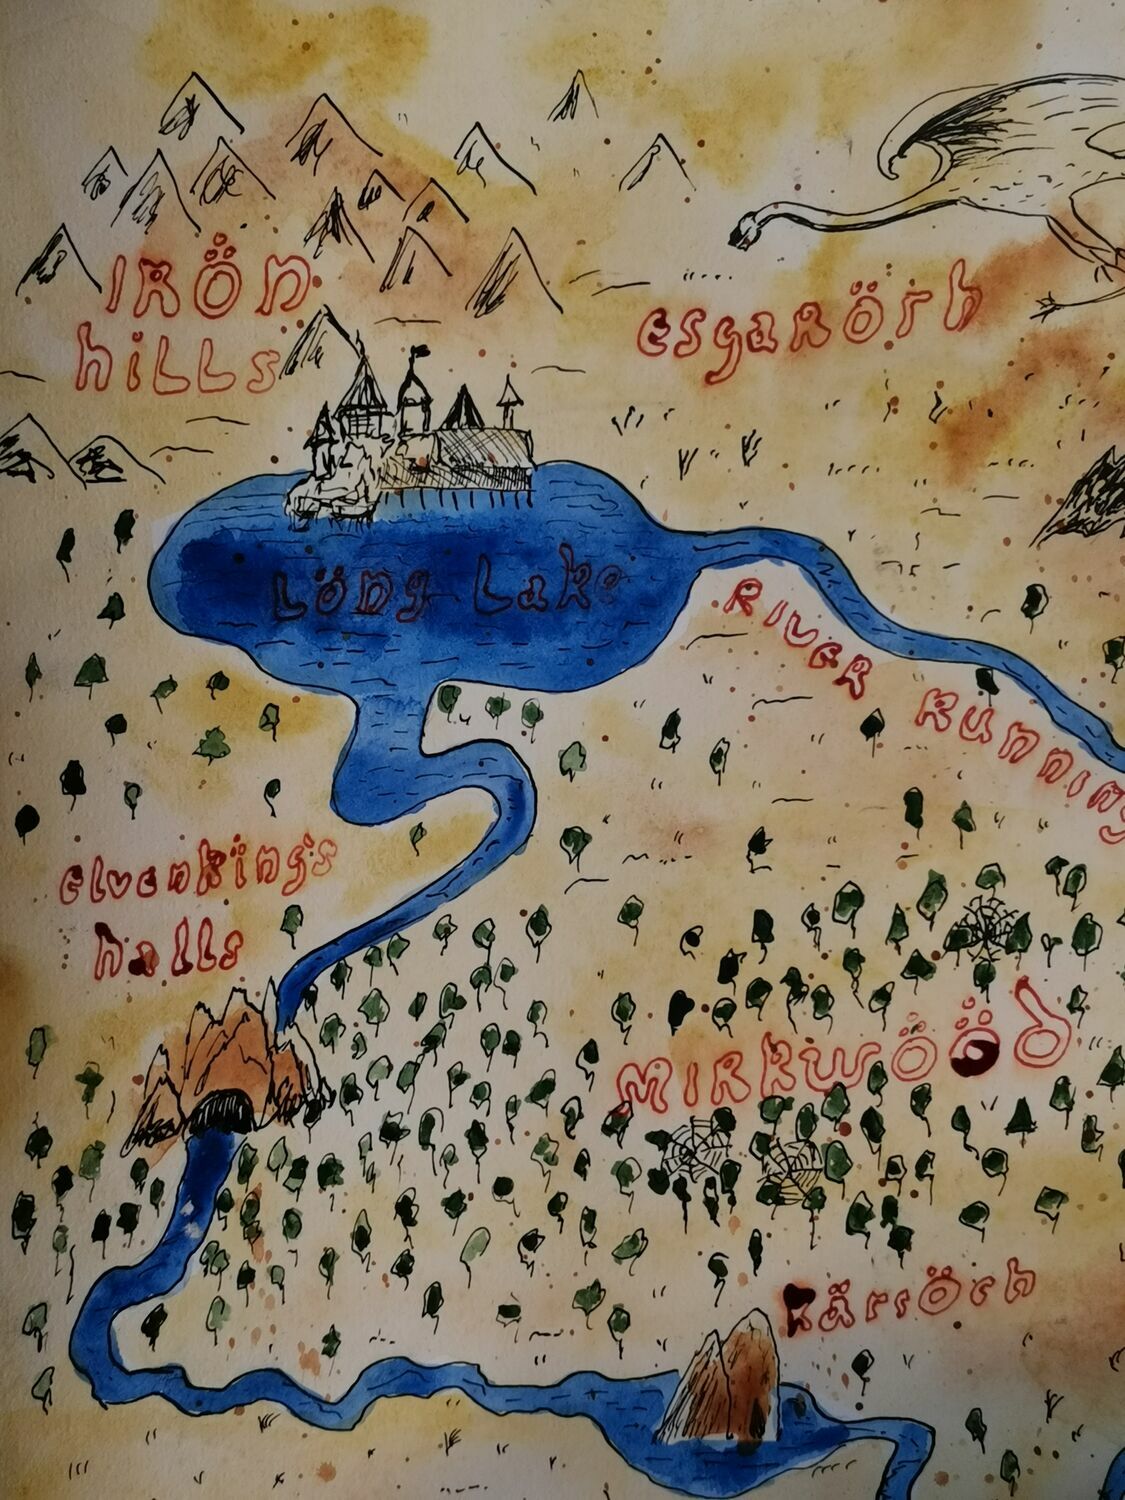 IRÖN
hiLLs
esgaRörh
Löng Lake
RIVER RUNNING
elvenkïng's
halls
MIRKWÖÖD
Kärrörh